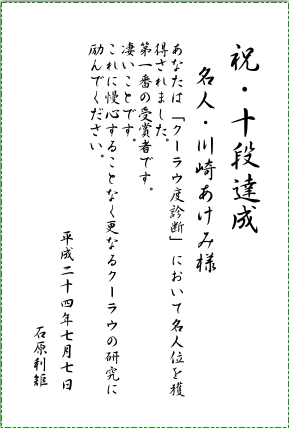 祝・十段達成
名人・川崎あけみ様
あなたは「クーラウ度診断」において名人位を獲
得されました。
第一番の受賞者です。
凄いことです。
これに慢心することなく更なるクーラウの研究に
励んでください。
平成二十四年七月七日
石原利矩